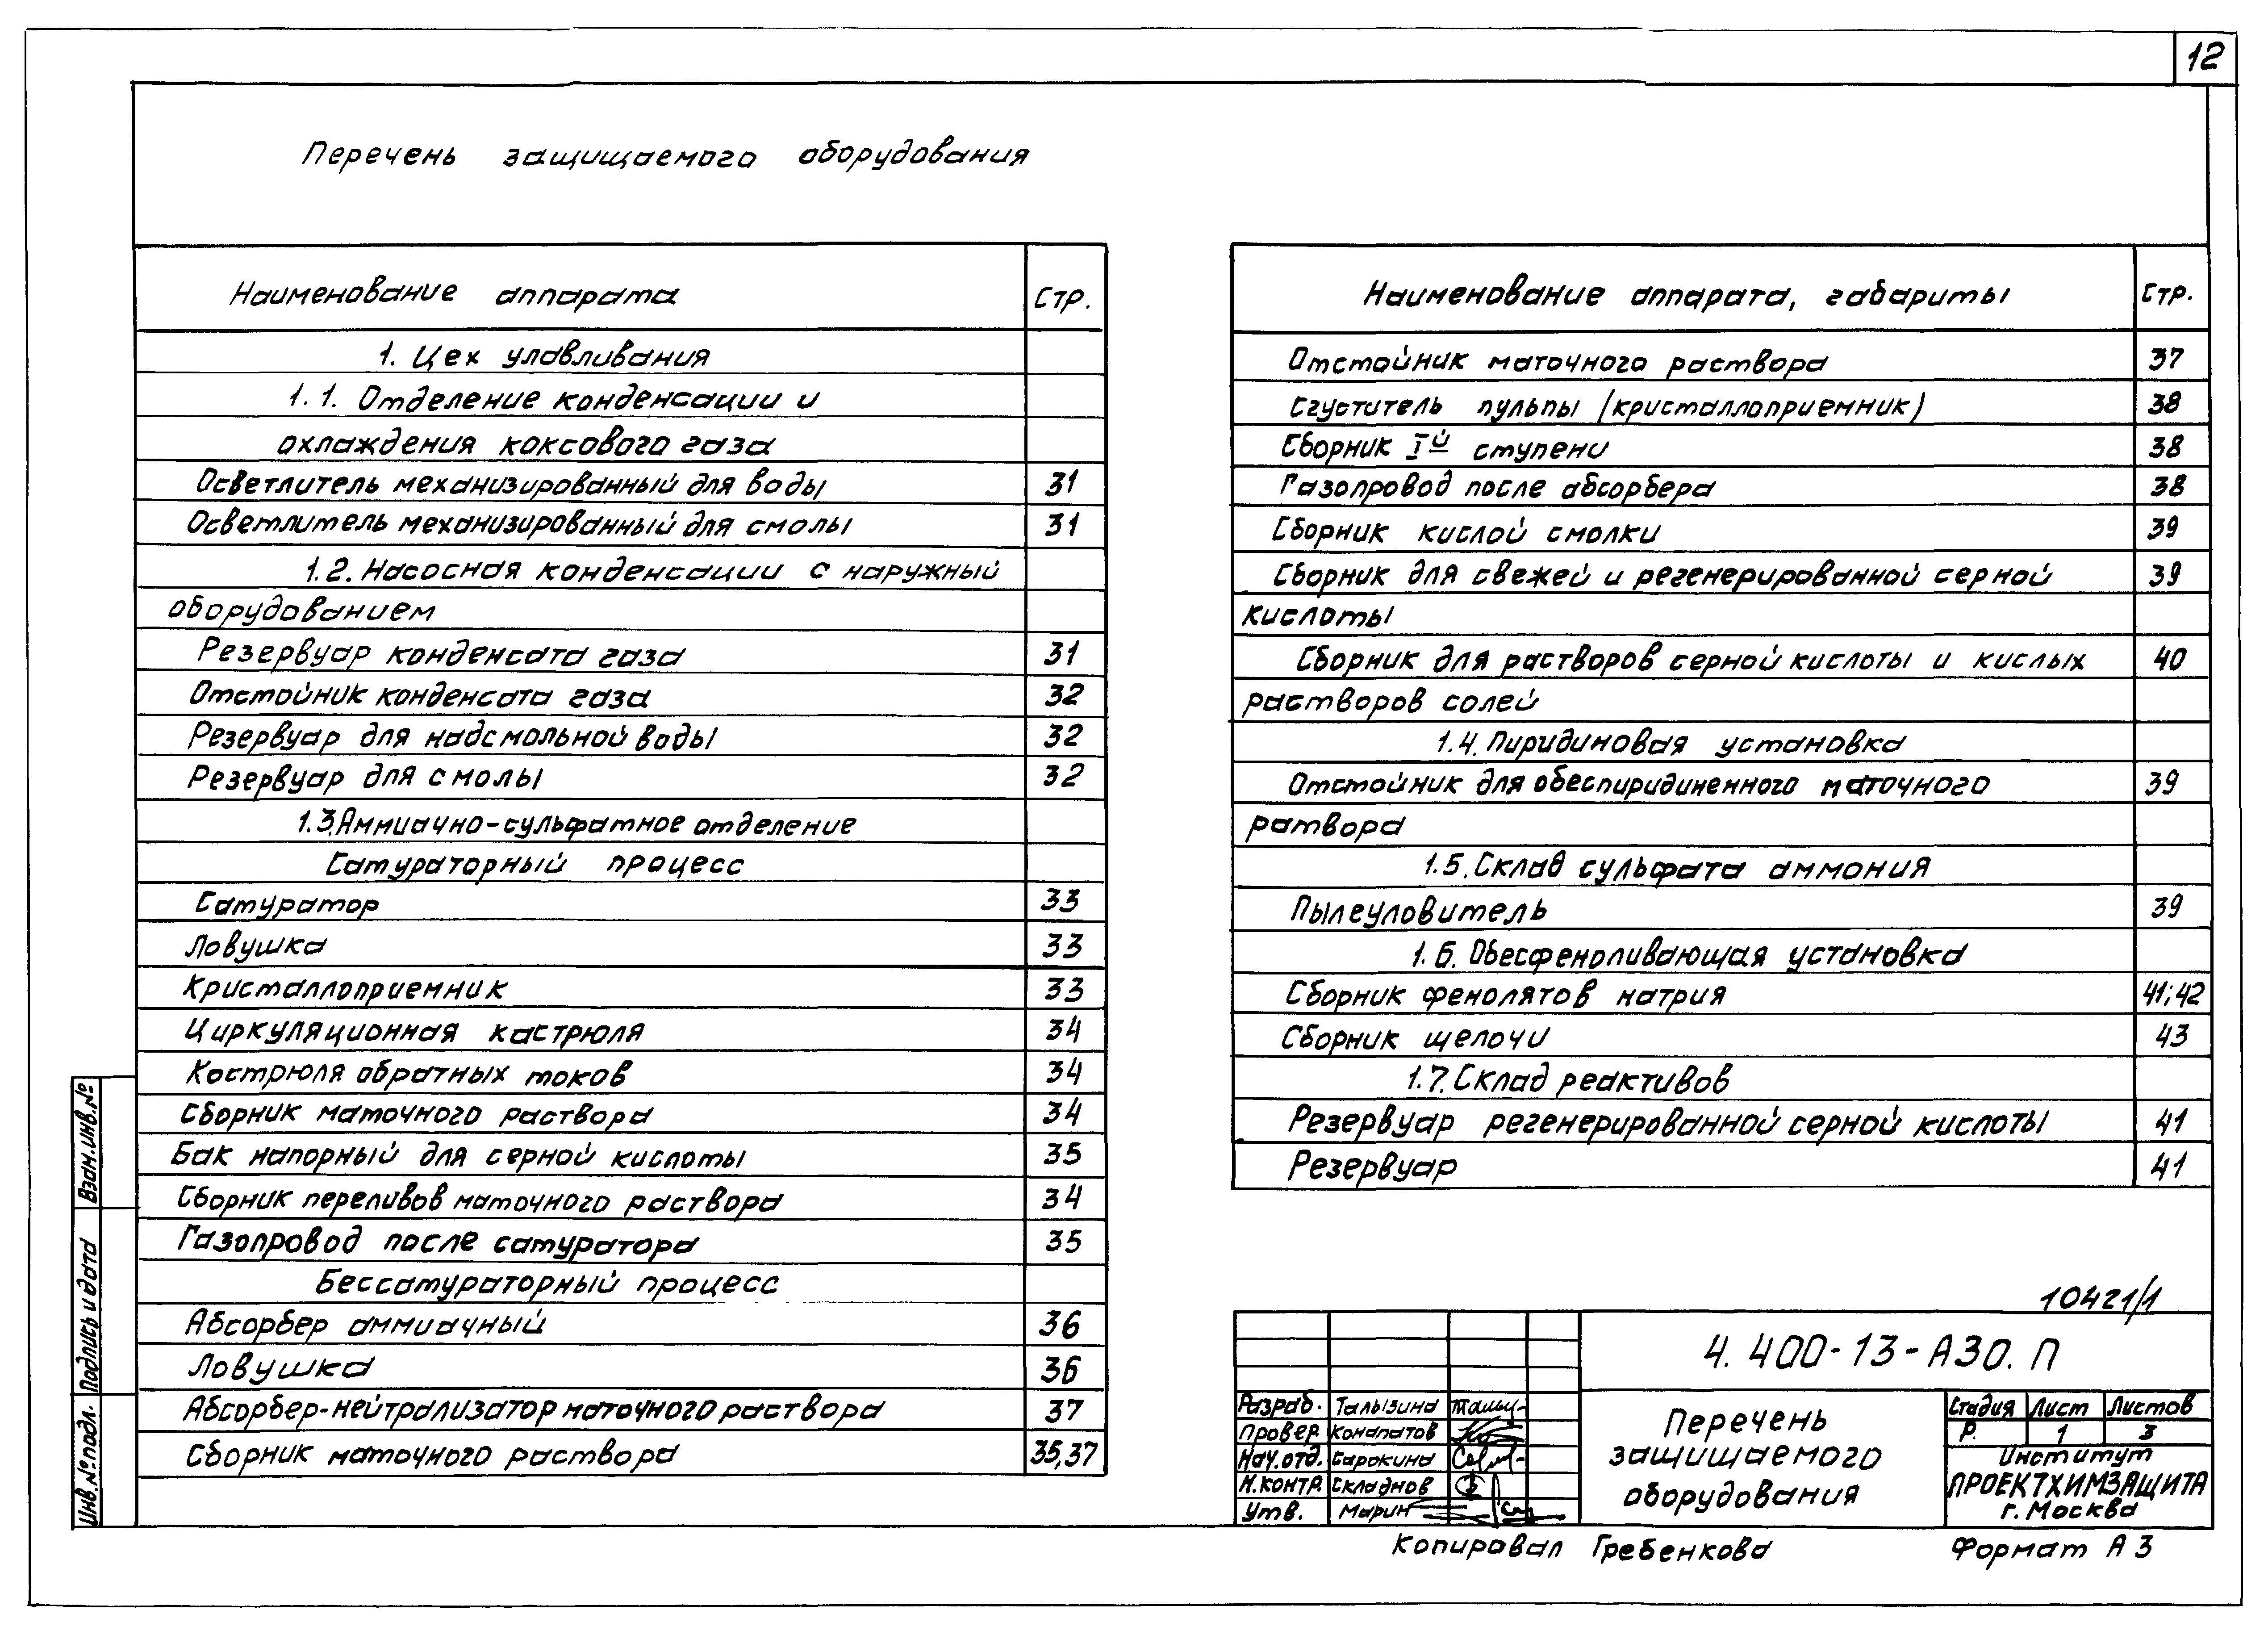 12
Перечень защищаемого оборудования
Наименование аппарата Стр.
1. Цех улавливания
1.1. Отделение конденсации и
охлаждения коксового газа
Осветлитель механизированный для воды 31
Осветлитель механизированный для смолы 31
1.2. Насосная конденсации с наружный
оборудованием
Резервуар конденсата газа 31
Отстойник конденсата газа 32
Резервуар для надсмольной воды 32
Резервуар для смолы 32
1.3.Аммиачно-сульфатное отделение
Сатураторный процесс
Сатуратор 33
Ловушка 33
Кристаллоприемник 33
Циркуляционная кастрюля 34
Кострюля обратных токов 34
Сборник маточного раствора 34
Бак напорный для серной кислоты 35
Сборник переливов маточного раствора 34
Газопровод после сатуратора 35
Бессатураторный процесс
Абсорбер аммиачный 36
Ловушка 36
Абсорбер-нейтрализатор маточного раствора 37
Сборник маточного раствора 35,37
Наименование аппарата, габариты Стр.
Отстойник маточного раствора 37
Сгуститель пульпы (кристаллоприемник) 38
Сборник Iй ступени 38
Газопровод после абсорбера 38
Сборник кислой смолки 39
Сборник для свежей и регенерированной серной 39
кислоты
Сборник для растворов серной кислоты и кислых 40
растворов солей
1.4. Пиридиновая установка
Отстойник для обеспиридиненного маточного 39
ратвора
1.5. Склад сульфата аммония
Пылеуловитель 39
1.6. Обесфеноливающая установка
Сборник фенолятов натрия 41;42
Сборник щелочи 43
1.7. Склад реактивов
Резервуар регенерированной серной кислоты 41
Резервуар 41
10421/1
4.400-13-АЗО.П
Разраб. Талызина
Провер Конапатов
Нач.отд. Сарокина
Н.контр Складнов
Утв. Марин
Перечень
защищаемого
оборудования
Стадия Лист Листов
Р. 1 3
Институт
ПРОЕКТХИМЗАЩИТА
г. Москва
Копировал Гребенкова Формат А3
Взам.инв.№
Подпись и дата
Инв.№ подл.